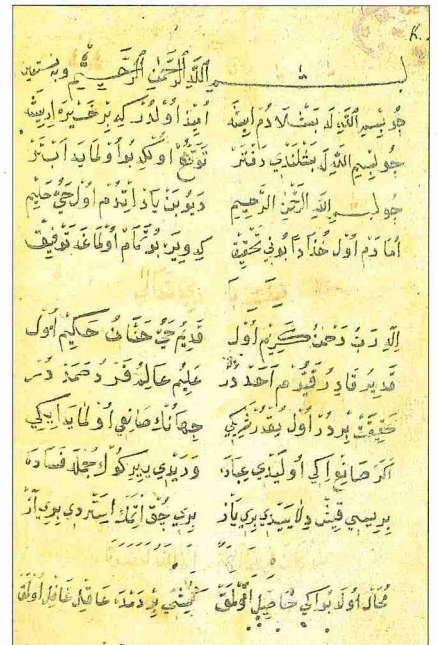 بسم الله الرحمن الرحيم وبه نستعين
چو بسم الله له بشلادم ايشه اميد اولدر كه بر خيره اريشه
چو بسم الله له بشلندى دفتر اوكدى بو اولمايه ابتر
چو بسم الله الرحمن الرحيم ديوبن ياد ايتدم اول حي حليم
اما دم اول خدادا بونى تحقيق كه ويره بو تمام اولماغه توفيق
اله رب رحمن كريم اول قديم حي حنان حكيم اول
قدير قادر قيوم احد در عليم عالم فرد صمد در
حقيقت بردر اول يقدر شريكى جهانك صانعى اولمايه ايكى
اكر صانع ايكى اوليدى وريدى يير كوك جمله فساده
بريسى قيش دلاييدى برى ياز برى چق ايتمك استردى برى از
محال اولا بو ايكى حاصل اولمق كشى بر دمده عاقل غافل اولمق